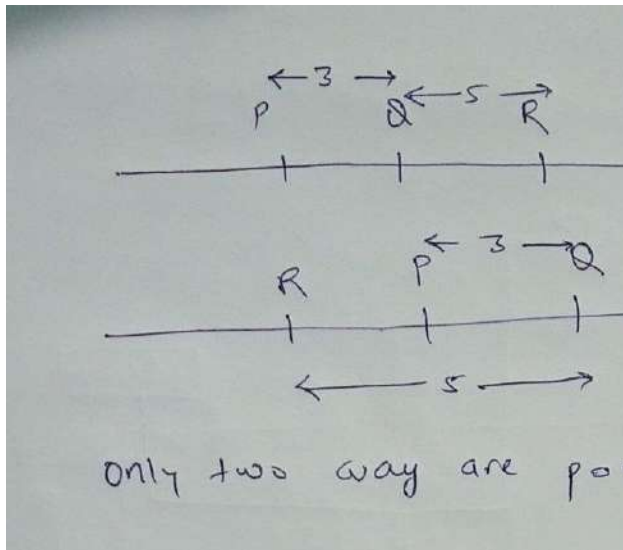 3
P Q 5 R
3
R P Q
5
only two way are po